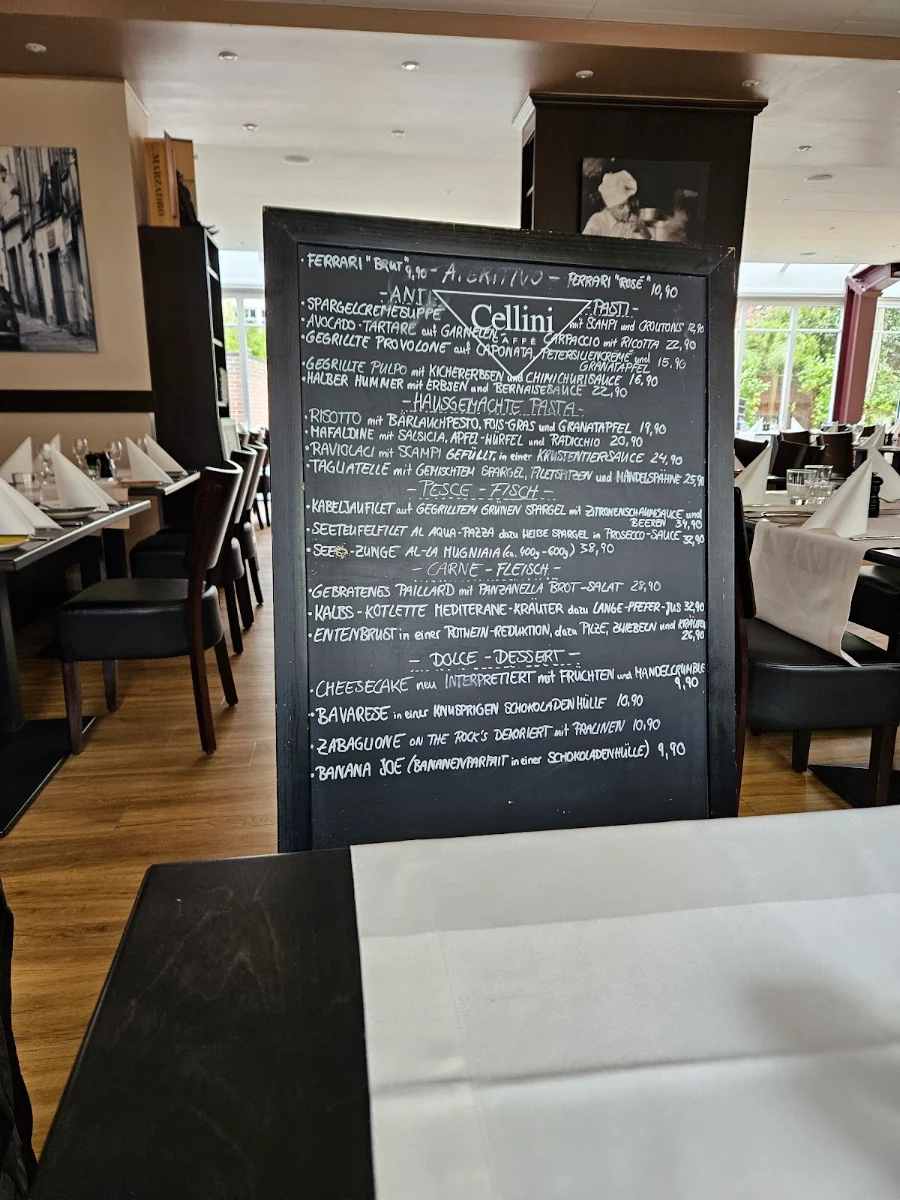 MARZADRO
FERRARI "BRUT" 9,90 - APERITIVO - FERRARI "ROSÉ" 10,90
- ANTI PASTI -
Cellini
CAFFÈ
· SPARGELCREMESUPPE mit SCAMPI und CROUTONS 12,90
· AVOCADO-TARTARE auf GARNELEN CARPACCIO mit RICOTTA 22,90
· GEGRILLTE PROVOLONE auf CAPONATA, PETERSILIENCREME und
GRANATAPFEL 15,90
· GEGRILLTE PULPO mit KICHERERBSEN und CHIMICHURISAUCE 16,90
· HALBER HUMMER mit ERBSEN und BERNAISESAUCE 22,90
- HAUSGEMACHTE PASTA -
· RISOTTO mit BÄRLAUCHPESTO, FOIS-GRAS und GRANATAPFEL 19,90
· MAFALDINE mit SALSICIA, APFEL-WÜRFEL und RADICCHIO 20,90
· RAVIOLACI mit SCAMPI GEFÜLLT, in einer KRUSTENTIERSAUCE 24,90
· TAGLIATELLE mit GEMISCHTEM SPARGEL, FILETSPITZEN und MANDELSPÄHNE 25,90
- PESCE - FISCH -
· KABELJAUFILET auf GEGRILLTEM GRÜNEN SPARGEL mit ZITRONENSCHAUMSAUCE und
BEEREN 34,90
· SEETEUFELFILET AL AQUA-PAZZA dazu WEIßE SPARGEL in PROSECCO-SAUCE
· SEE-ZUNGE AL-LA MUGNIAIA (ca. 400g-600g) 38,90
- CARNE - FLEISCH -
· GEBRATENES PAILLARD mit PANZANELLA BROT-SALAT 28,90
· KALBS-KOTLETTE MEDITERANE-KRÄUTER dazu LANGE-PFEFER-JUS 32,90
· ENTENBRUST in einer ROTWEIN-REDUKTION, dazu PILZE, ZWIEBELN und KRÄUTER
26,90
- DOLCE - DESSERT -
· CHEESECAKE neu INTERPRETIERT mit FRÜCHTEN und MANDELCRUMBLE
9,90
· BAVARESE in einer KNUSPRIGEN SCHOKOLADENHÜLLE 10,90
· ZABAGLIONE ON THE ROCK'S DEKORIERT mit PRALINEN 10,90
· BANANA JOE (BANANENPARFAIT in einer SCHOKOLADENHÜLLE) 9,90